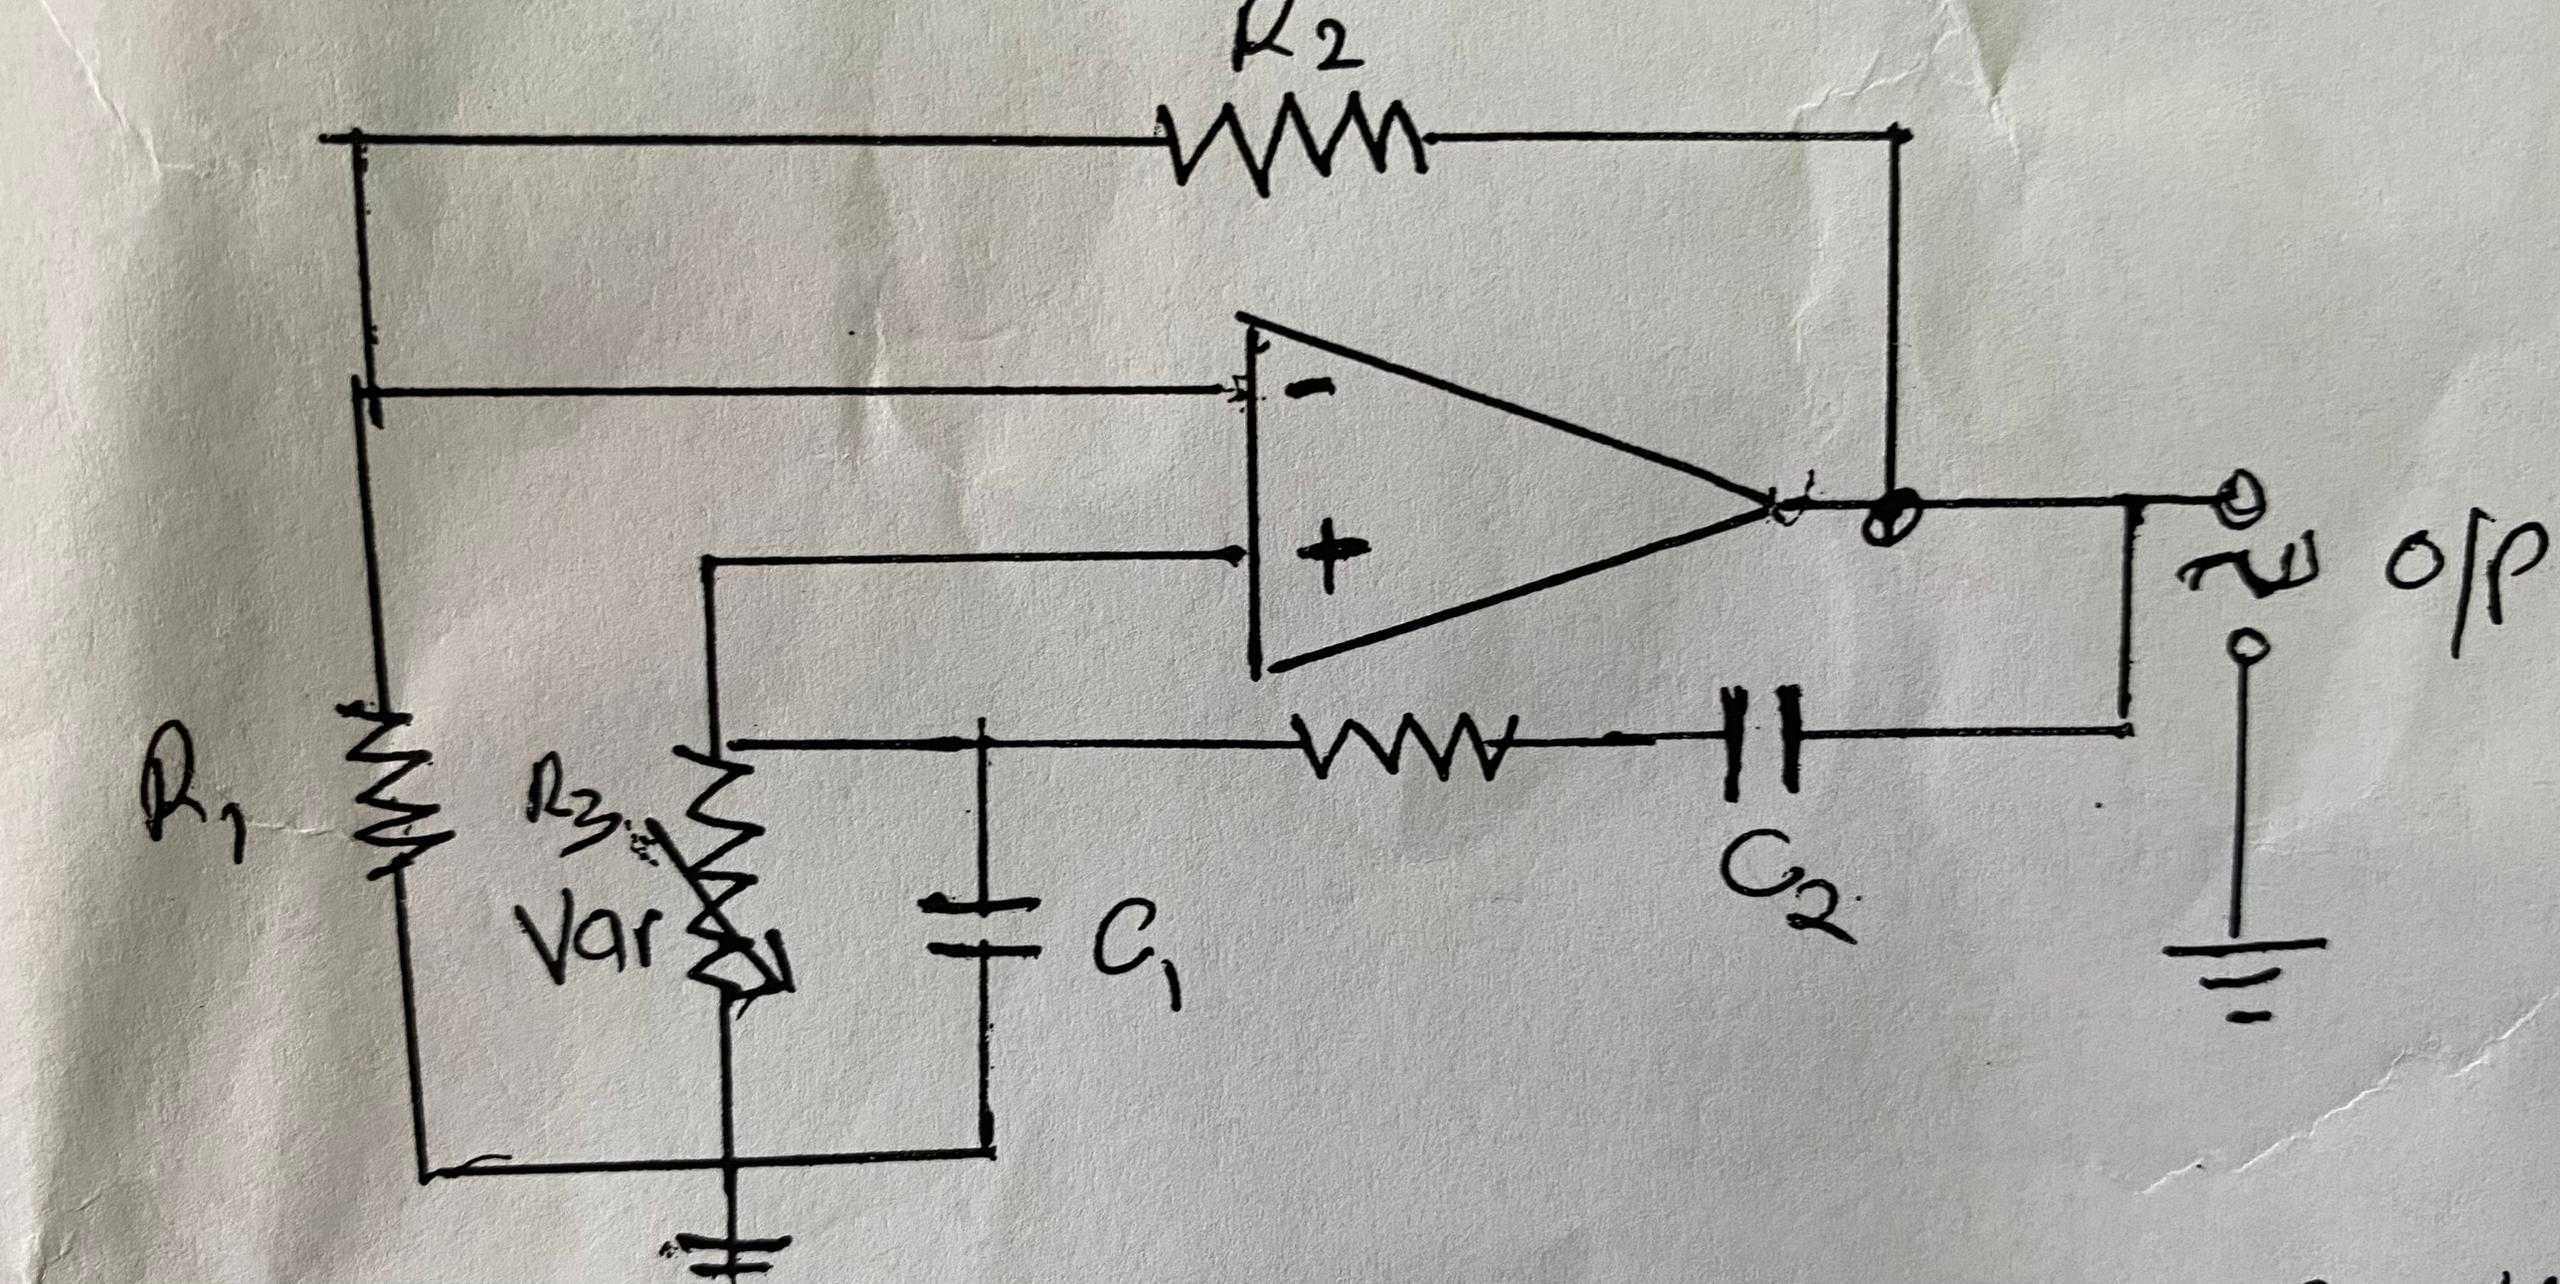 R2
-
+
O/P
R1
R3
Var
C1
C2